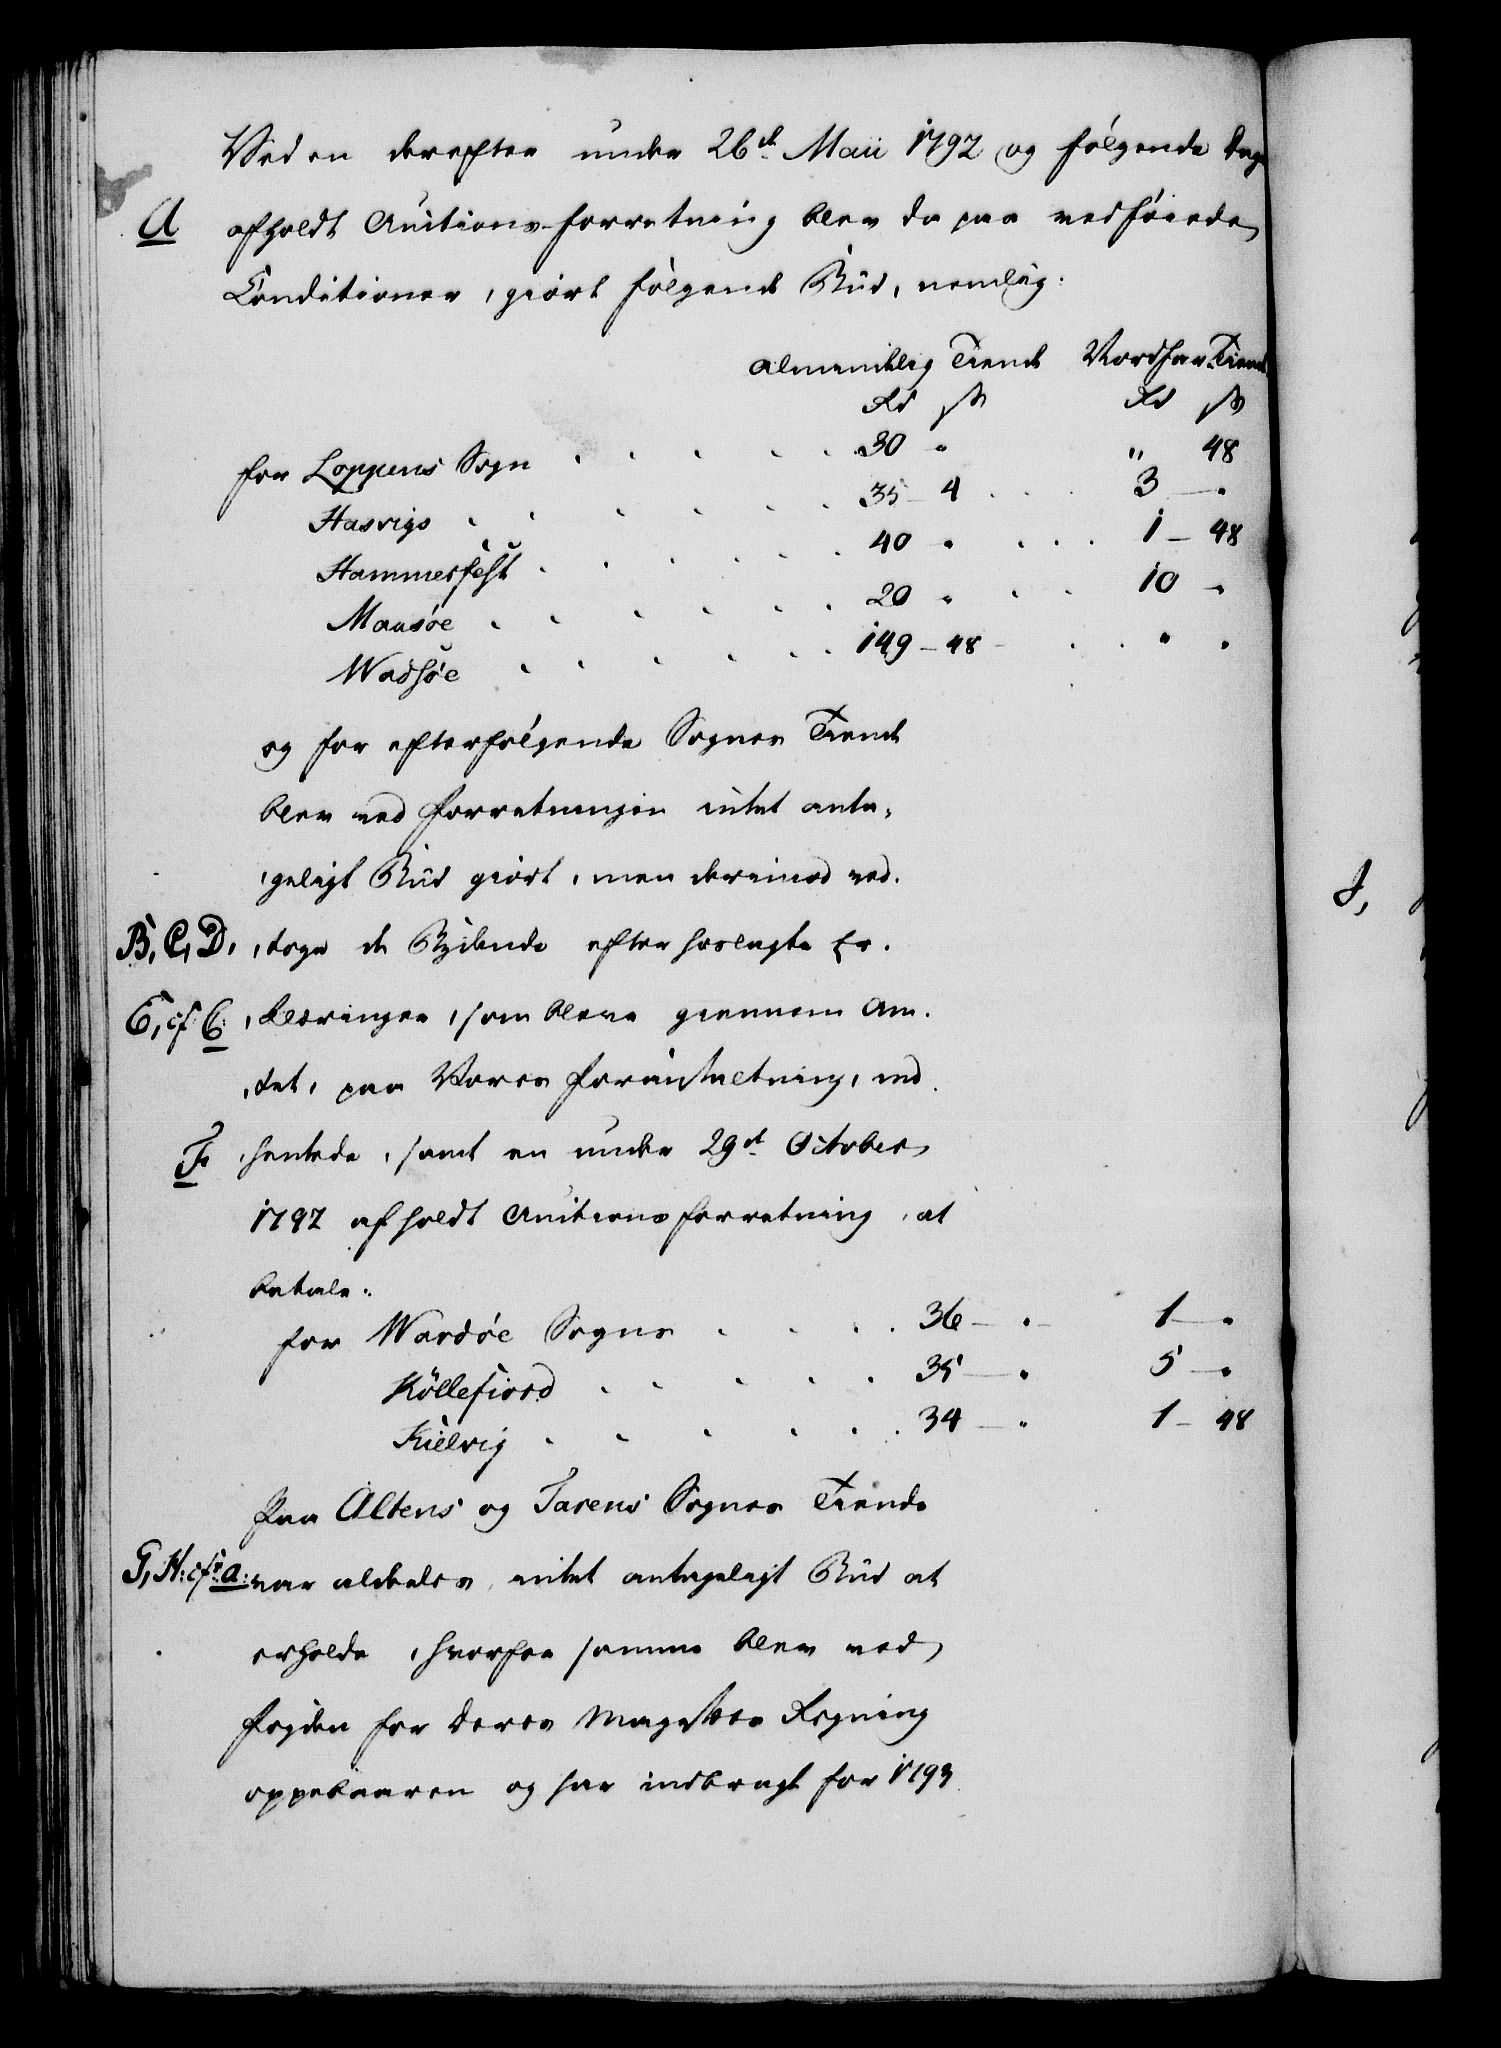 Ved en derefter under 26de Maii 1792 og følgende Dage
A afholdt Auctions-forretning blev da paa vedføiede
Conditioner, giort følgende Bud, nemlig:
almindelig Tiende Vordhar-Tiende
Rd ß Rd ß
for Loppens Sogn . . . . . 30 " " 48
Hasvigs . . . . . . 35 - 4 . . . 3 - "
Hammerfest . . . . . . 40 " . . . 1 - 48
Maasøe . . . . . . 20 " . . 10 - "
Wadsøe . . . . . . 149 - 48 - . . " "
og for efterfølgende Sognes Tiende
blev ved forretningen intet anta-
geligt Bud giort, men derimod ved-
B, C, D, toge de Bydende efter hoslagte Er-
E, cf C: klæringer, som bleve giennem Am-
tet, paa Vores foranstaltning, ind-
F hentede, samt en under 29de October
1792 afholdt Auctionsforretning, at
betale:
for Wardøe Sogne . . . . 36 - " - 1 - "
Köllefiord . . . . . 35 - " 5 - "
Kielvig . . . . . . 34 - " 1 - 48
Paa Altens og Jarens Sognes Tiende
G, H: cfr a: var aldeles intet antageligt Bud at
erholde, hvorfor samme blev ved
fogden for Deres Majestets Regning
oppebaaren og har indbragt for 1793
J,